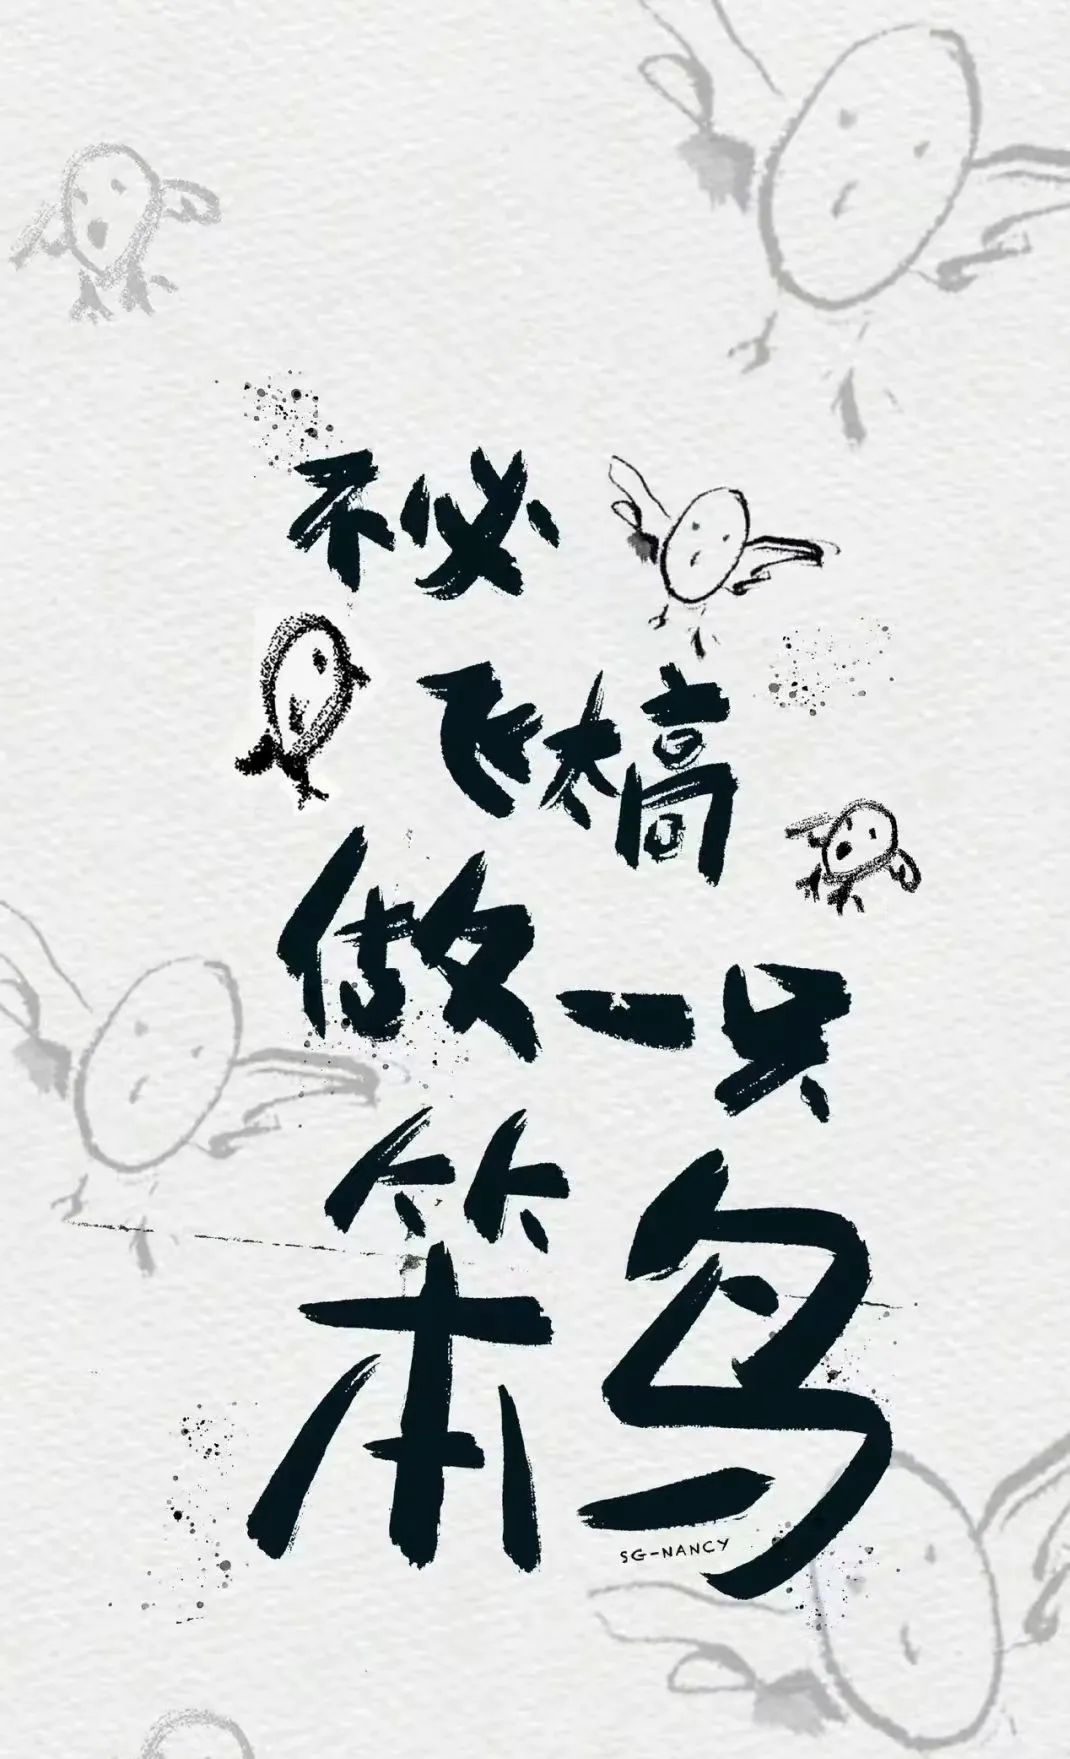 不必
飞太高
做一只
笨鸟
SG-NANCY